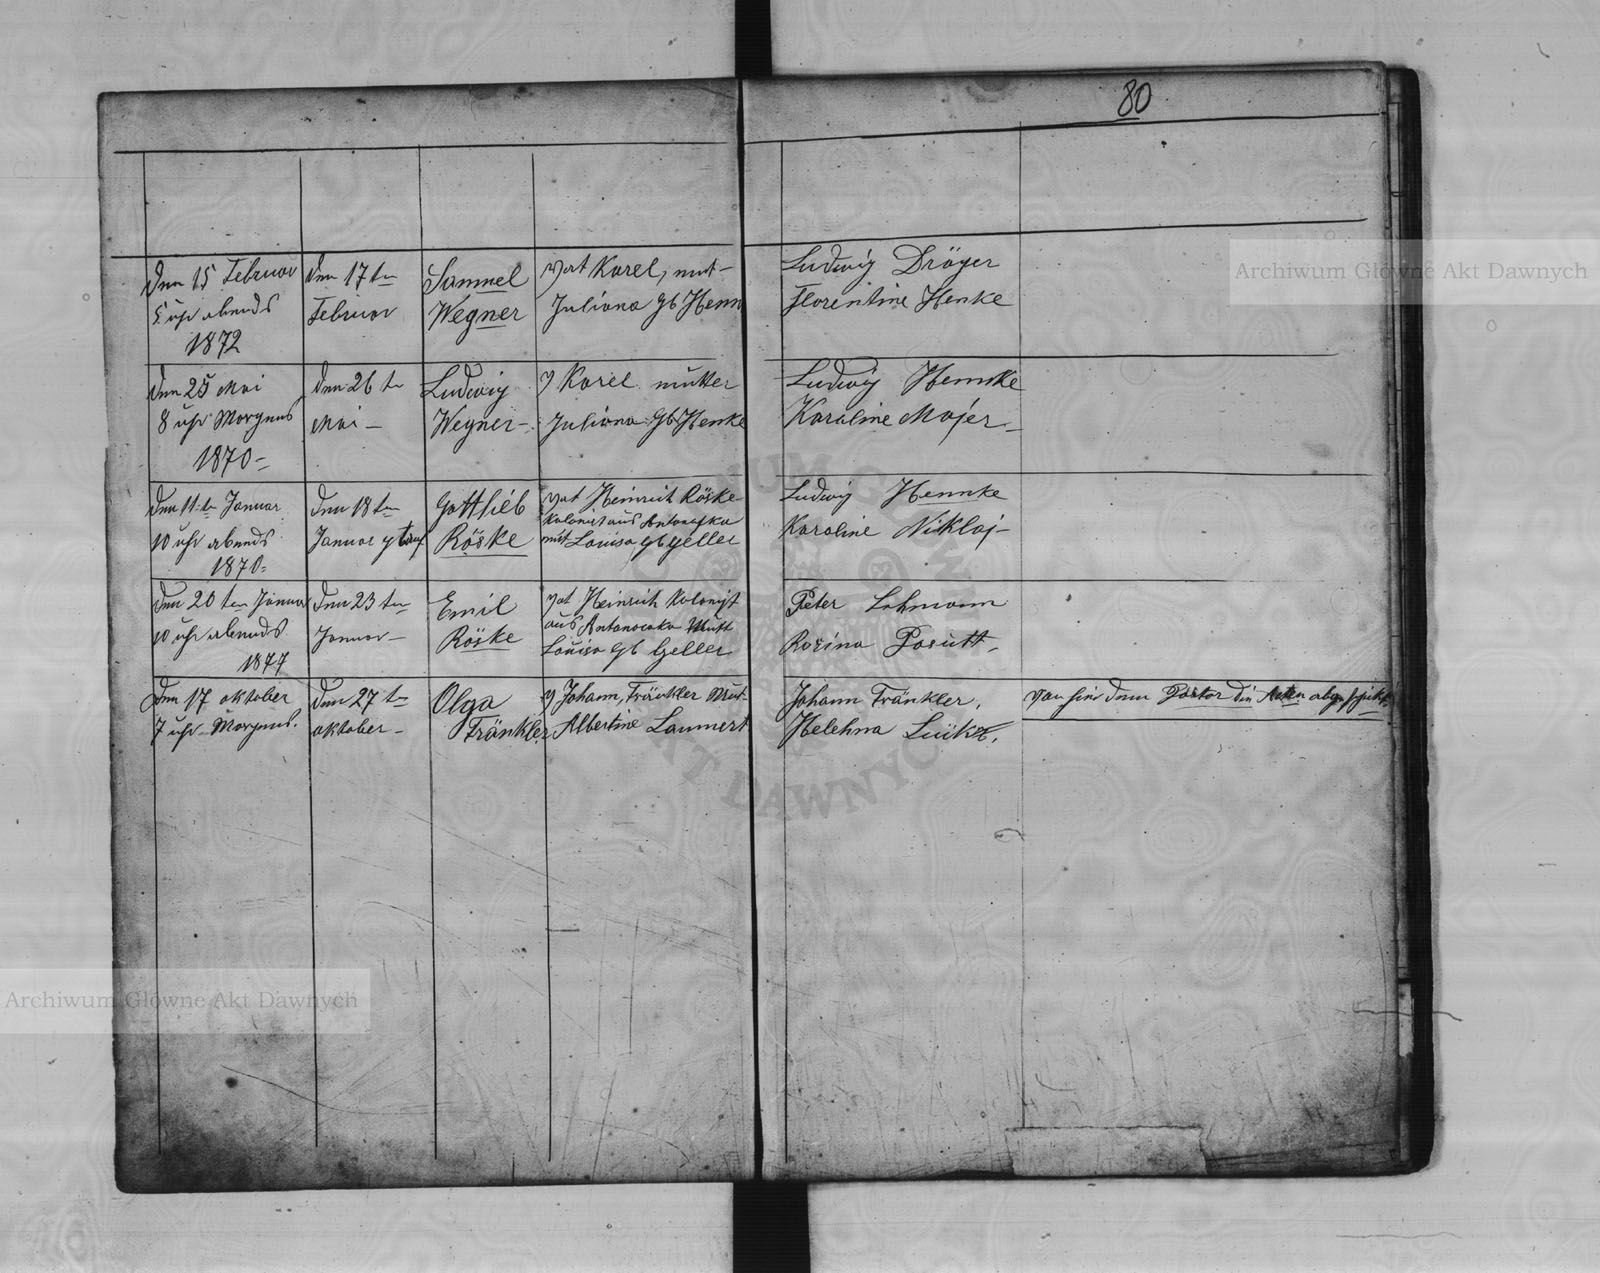 80
Den 15 Februar
5 uhr abends
1872
Den 17 ten
Februar
Samuel
Wegner
Vat Karel, mut-
Juliana Gb Henn
Ludwig Dröger
Florentine Henke
Den 25 Mai
8 uhr Morgens
1870-
Den 26 te
Mai -
Ludwig
Wegner-
V Karel mutter
Juliana Gb Henke
Ludwig Hennke
Karaline Majer-
Den 11 te Januar
10 uhr abends
1870-
Den 18 ten
Januar
Gottlieb
Röske
vat Heinrich Röske
Kolonist aus
mut Louisa gb Geller
Ludwig Hennke
Karaline Niklaj-
Den 20 ten Januar
10 uhr abends
1877
Den 23 ten
Januar-
Emil
Röske
Vat Heinrich Kolonist
aus Mutt
Louisa Gb Geller
Peter Lohmann
Rosina
Den 17 oktober
7 uhr Morgens.
Den 27 te
oktober-
Olga
Fränkler
V Johann, Fränkler Mut-
Albertine Lannert
Johann Fränkler,
Helehna
von hir dem Pastor die Akten abgeschikt
Archiwum Główne Akt Dawnych
Archiwum Główne Akt Dawnych